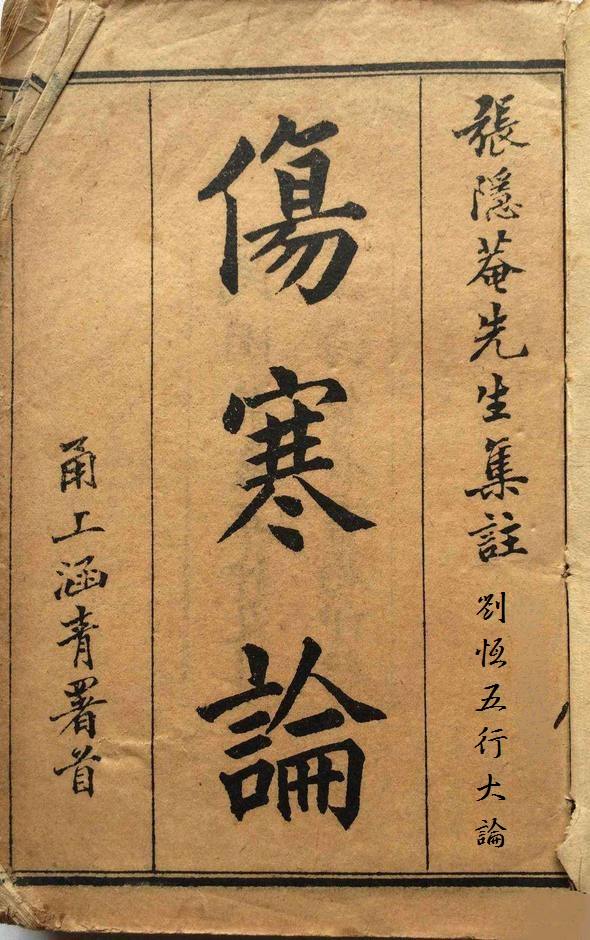 張隱菴先生集註 劉恆五行大論
傷寒論
甬上涵青署首